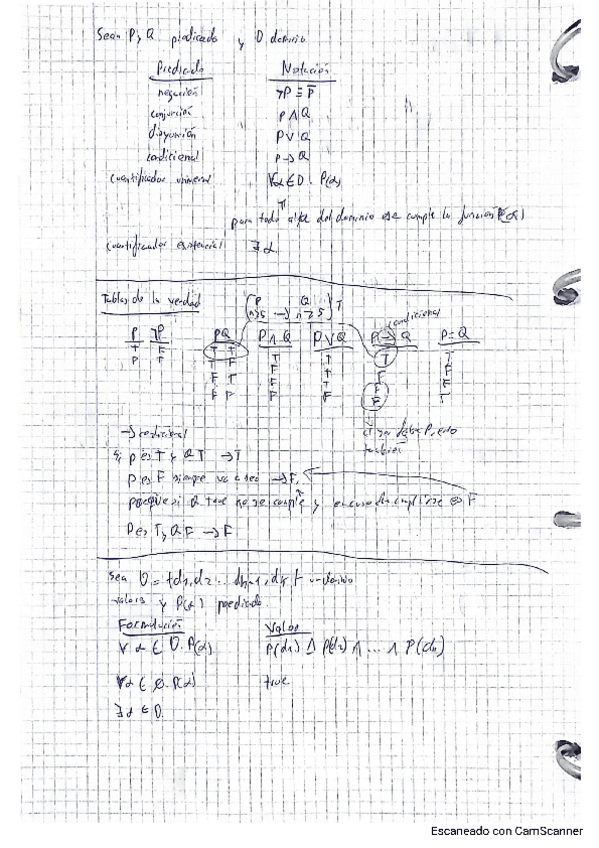 Sean P y Q predicado y D dominio.
Predicado Notación
negación ¬P ≡ P̅
conjunción P ∧ Q
disyunción P ∨ Q
condicional P → Q
cuantificador universal ∀α ∈ D . P(α)
para todo alfa del dominio se cumple la función P(α)
cuantificador existencial ∃ α
Tablas de la verdad
P Q T
n≥5 → n≥5
condicional
P ¬P PQ P ∧ Q P ∨ Q P → Q P ≡ Q
T T T T T T T
F T T F F T F F
F T F T F F
F F F F F T
también
→ condicional
Si P es T y Q T → T
P es F siempre va a ser → F,
porque si Q no se cumple y F
P es T y Q F → F
Sea D = {d1, d2 ... dn-1, dn}
valores y P(α) predicado.
Formulación Valor
∀ α ∈ D. P(α) P(d1) ∧ P(d2) ∧ ... ∧ P(dn)
∀α ∈ ∅. P(α) true
∃ α ∈ D.
Escaneado con CamScanner